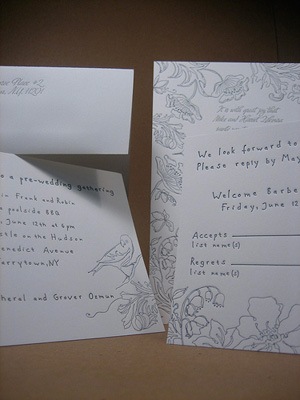 Place #2
NY 11201
o a pre-wedding gathering
in Frank and Robin
a poolside BBQ
June 12th at 6pm
stle on the Hudson
Benedict Avenue
arrytown, NY
heral and Grover Oxmun
It is with great joy that
We look forward to
Please reply by May
Welcome Barbe
Friday, June 12
Accepts
list name(s)
Regrets
list name(s)